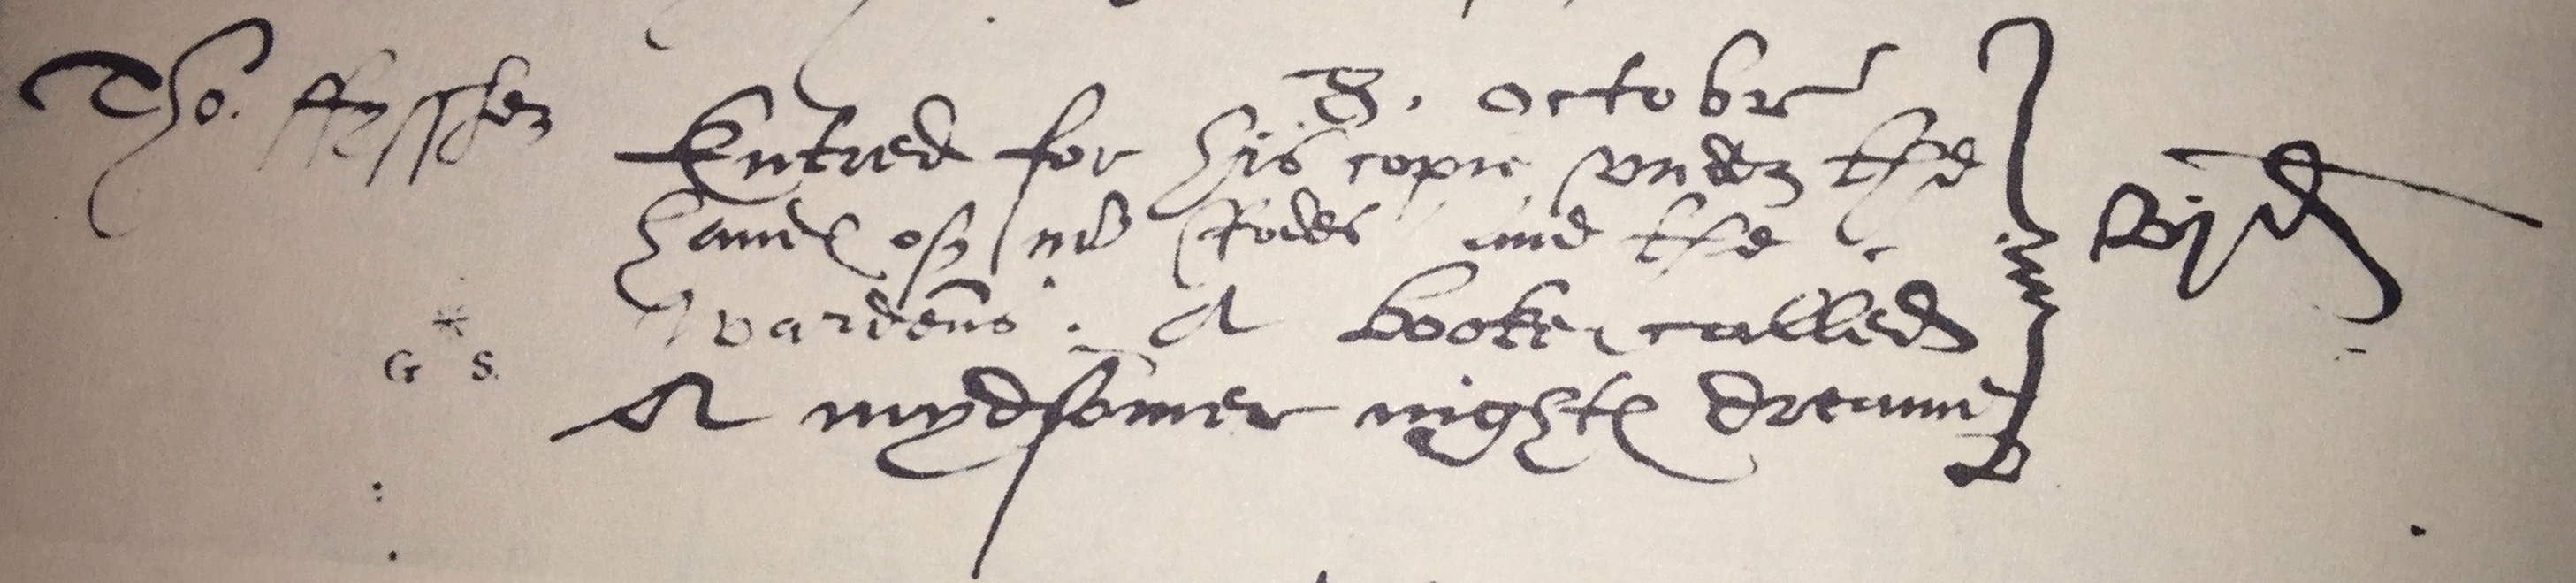 8. octobr
Tho. ffyssher Entred for his copie vnder the
handes of mr Rodes and the
Wardens. A booke called
G S.
A mydsomer nightes dreame
vjd